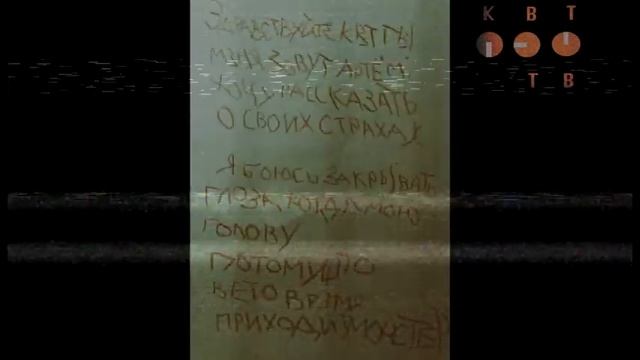 К В Т
Т В
ЗДРАВСТВУЙТЕ К В Т Т В Ы
МИНЯ ЗОВУТ АРТЁМ
ХОЧУ РАССКАЗАТЬ
О СВОИХ СТРАХАХ
Я БОЮСЬ ЗАКРЫВАТЬ
ГЛОЗА КОГДА МОЮ
ГОЛОВУ
ПОТОМУШТО
В ЕТО ВРЕМЯ
ПРИХОДИТ МОНСТЕР